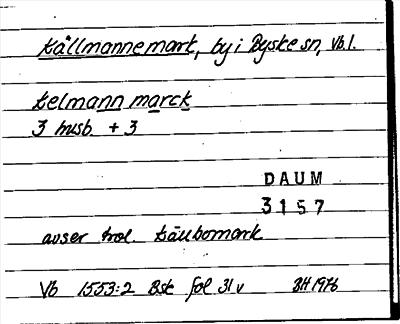 tällmannemark, by i Byske sn, Vb.l.
telmann marck
3 husb. + 3
DAUM
3157
avser trol. Täubomark
Vb 1553:2 Bsk fol 31 v BH 1976